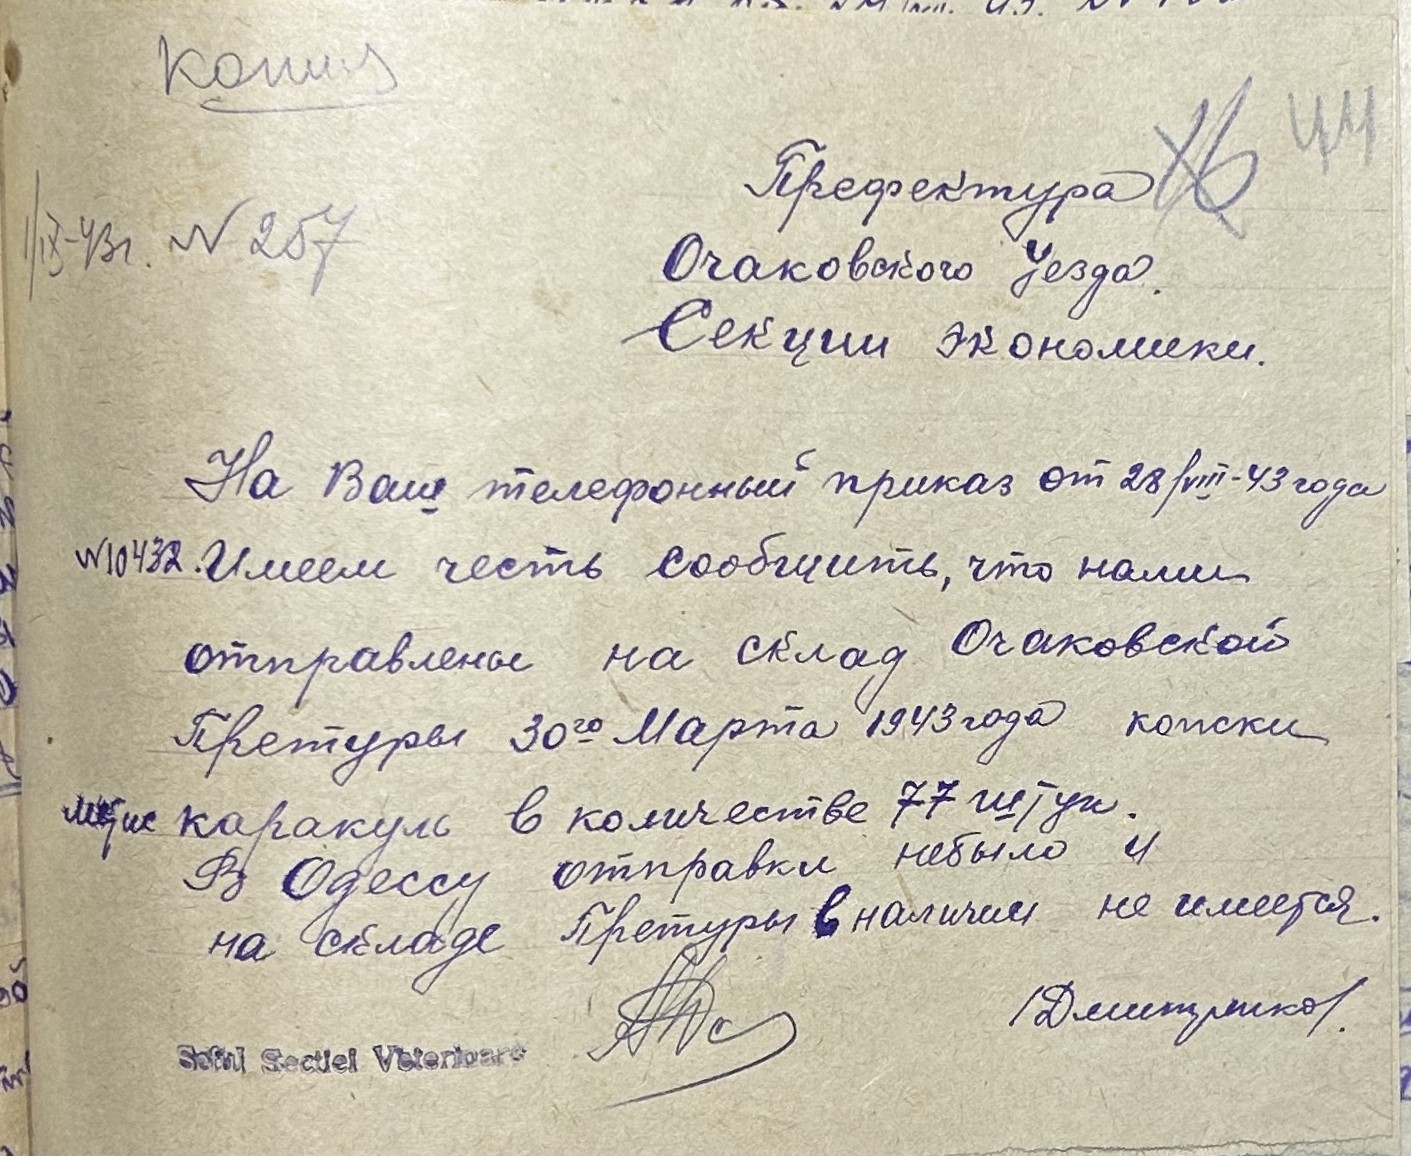 Копия
Префектура
44
1/IX-43г. N 257
Очаковского Уезда.
Секции экономики.
На Ваш телефонный приказ от 28/VIII-43 года
N10432. Имеем честь сообщить, что нами
отправлены на склад Очаковской
Претуры 30го Марта 1943 года копски
метис каракуль в количестве 77 штук.
В Одессу отправки небыло и
на складе Претуры в наличии не имеется.
/Дмитрико/.
Sefful Sectiei Veterinare